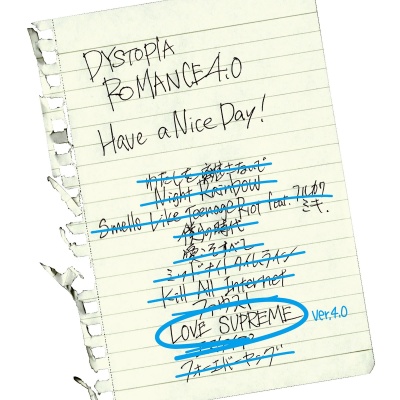 DYSTOPIA
ROMANCE 4.0
Have a Nice Day!
わたしを 離さないで
Night Rainbow
Smells Like Teenage Riot feat. フルカワ
ミキ.
僕らの時代
愛こそすべて
ミッドナイトタイムライン
Kill All Internet
ファウスト
LOVE SUPREME
Ver.4.0
フォーエバーヤング